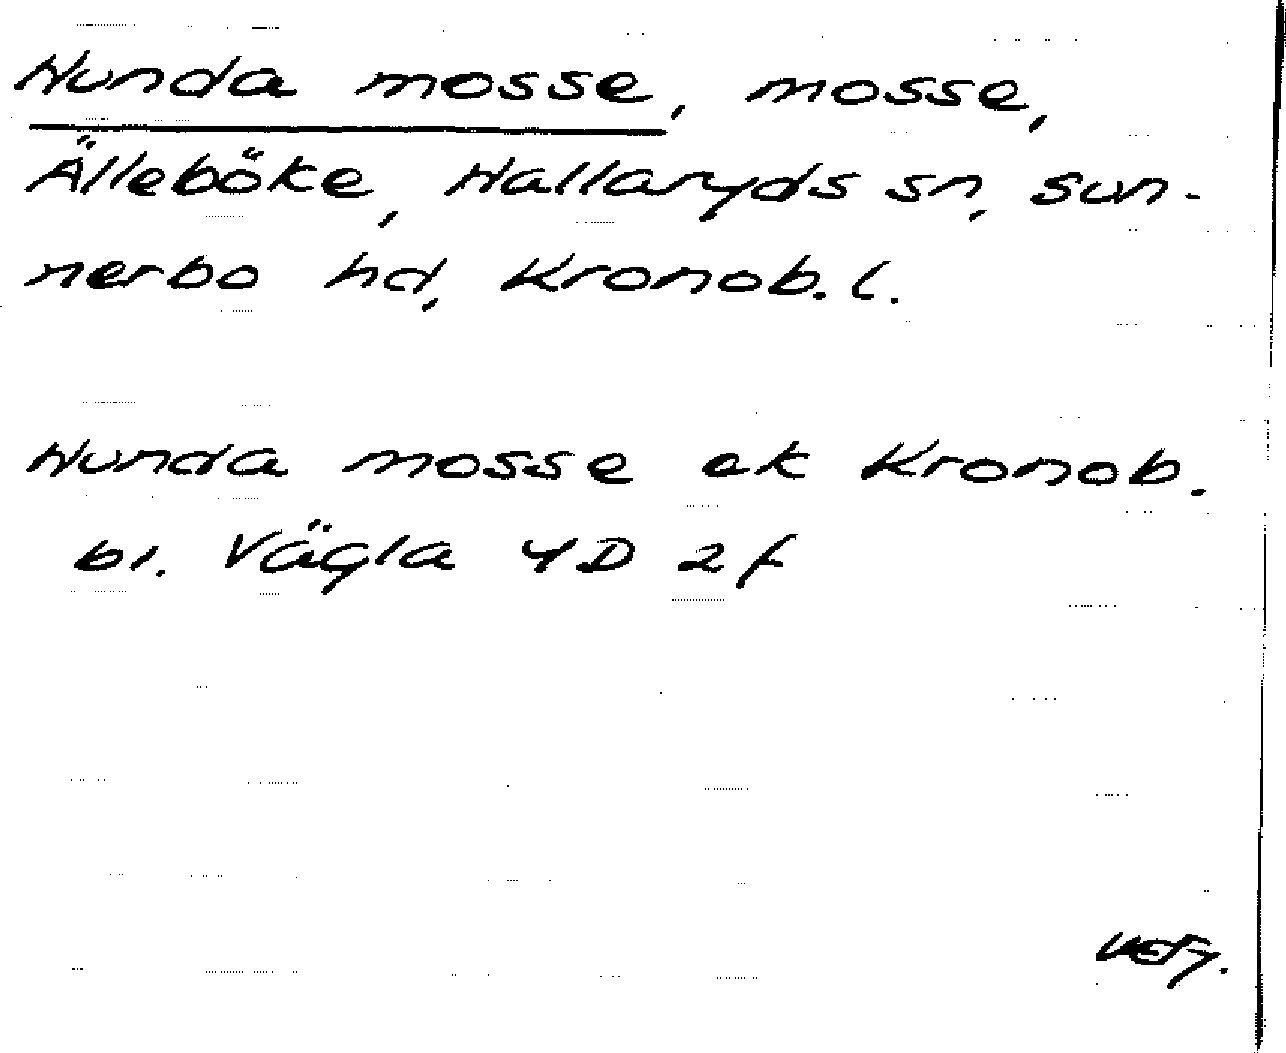 Hunda mosse, mosse,
Älleböke, Hallaryds sn, Sun-
nerbo hd, Kronob. l.
Hunda mosse ek Kronob.
bl. Vägla 4D 2f